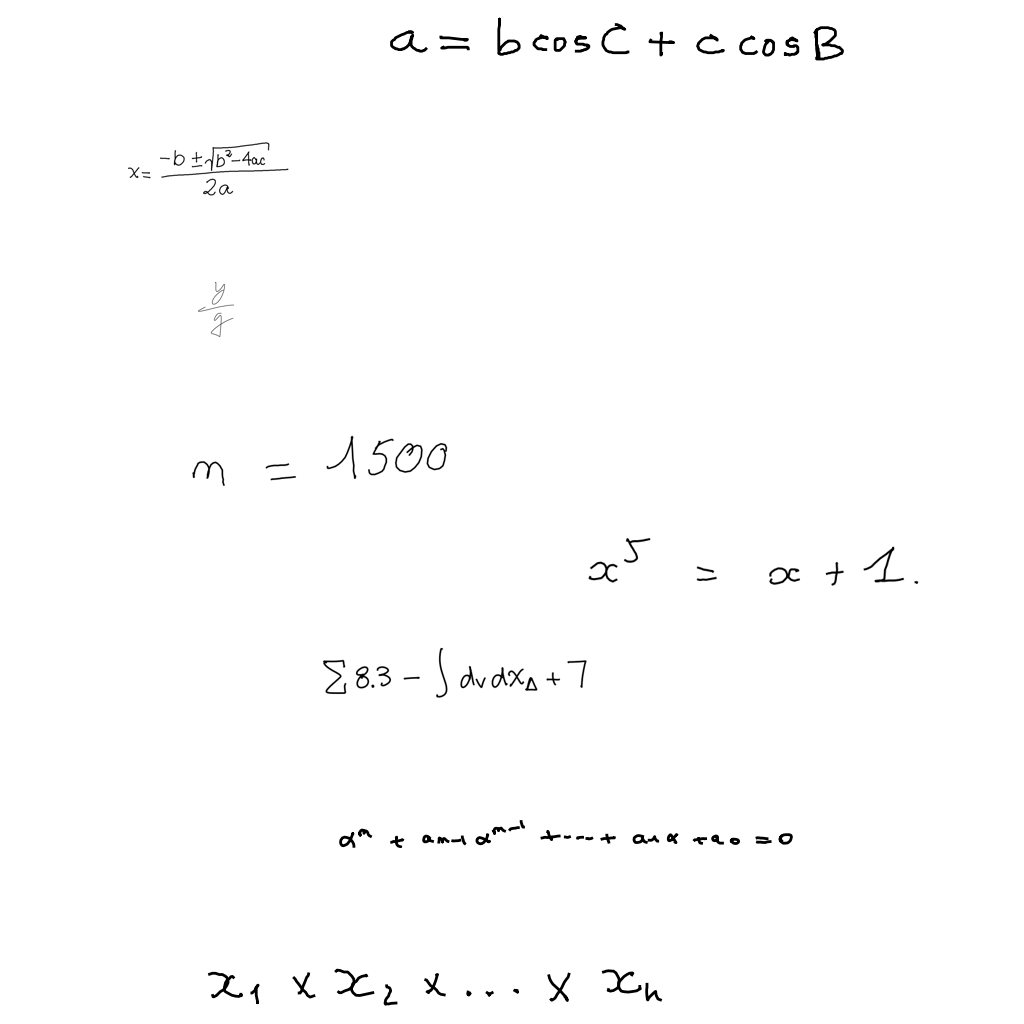 a = b cos C + c cos B
x = \frac{-b ± \sqrt{b^2 - 4ac}}{2a}
\frac{y}{g}
n = 1500
x^5 = x + 1.
∑ 8.3 - ∫ dv dx_Δ + 7
α^n + a_{n-1} α^{n-1} + ---- + a_1 α + a_0 = 0
x_1 × x_2 × ... × x_n